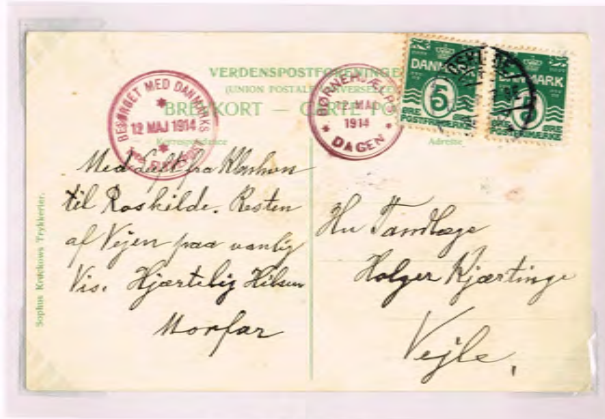 VERDENSPOSTFORENINGEN
(UNION POSTALE UNIVERSELLE)
BREVKORT — CARTE POSTALE
Correspondance
Adresse
BESØRGET MED DANMARKS
12 MAJ 1914
BØRNEHJÆLPS
12 MAJ
1914
DAGEN
DANMARK
5
POSTFRIMÆRKE
DANMARK
5
POSTFRIMÆRKE
fra Kbhvn
til Roskilde. Resten
af Vejen paa vanlig
Vis. Hjærtelig Hilsen
Morfar
Hr Tandlæge
Holger Kjærtinge
Vejle.
Sophus Kruckows Trykkerier.